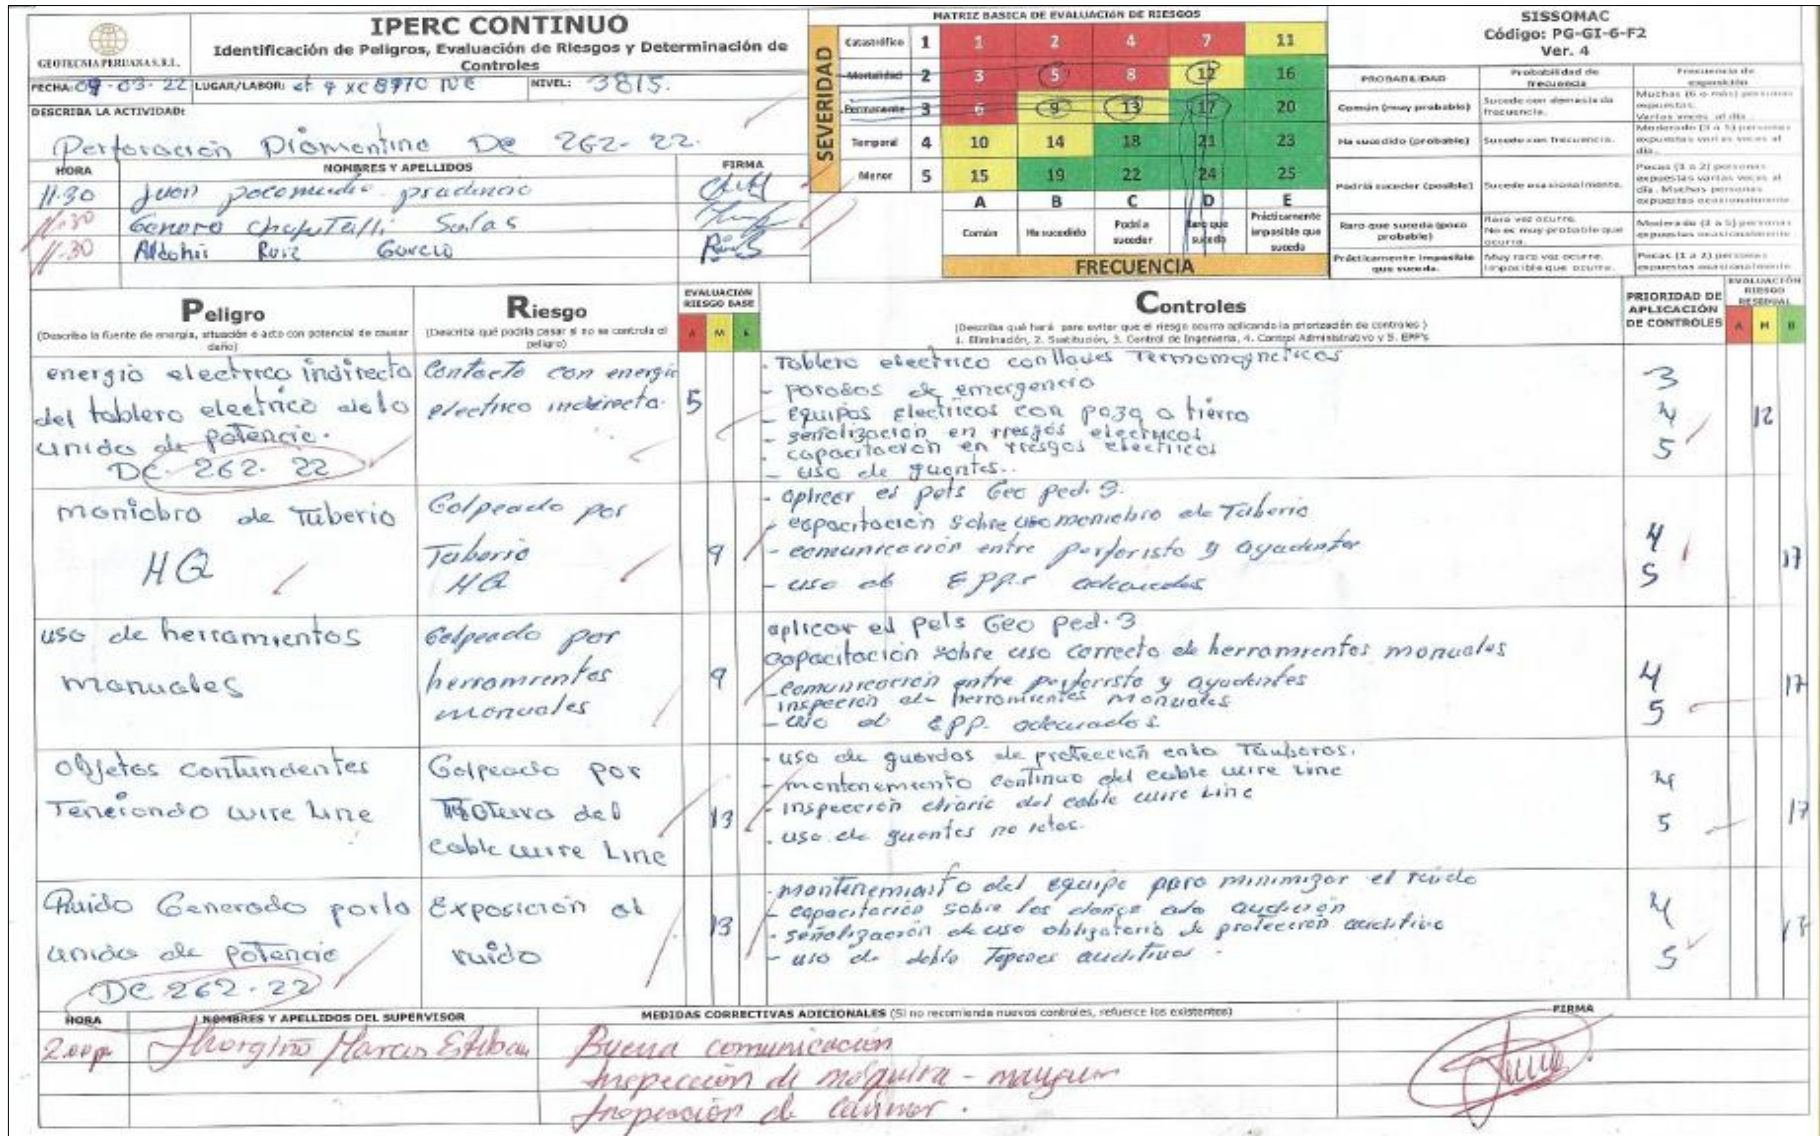 GEOTECNIA PERUANA S.R.L.
IPERC CONTINUO
Identificación de Peligros, Evaluación de Riesgos y Determinación de
Controles
FECHA: 09-03-22 LUGAR/LABOR: NE NIVEL: 3815.
DESCRIBA LA ACTIVIDAD:
Perforación Diamantina De 262-22.
HORA NOMBRES Y APELLIDOS FIRMA
11.30 Juan
11.30 Genaro Salas
11.30 Ruiz
MATRIZ BASICA DE EVALUACIÓN DE RIESGOS
SEVERIDAD
Catastrófico 1 1 2 4 7 11
Mortalidad 2 3 5 8 12 16
Permanente 3 6 9 13 17 20
Temporal 4 10 14 18 21 23
Menor 5 15 19 22 24 25
A B C D E
Común Ha sucedido Podría suceder Raro que suceda Prácticamente imposible que suceda
FRECUENCIA
SISSOMAC
Código: PG-GI-6-F2
Ver. 4
PROBABILIDAD Probabilidad de frecuencia Frecuencia de exposición
Común (muy probable) Sucede con demasiada frecuencia. Muchas (6 o más) personas expuestas. Varias veces al día.
Ha sucedido (probable) Sucede con frecuencia. Moderado (3 a 5) personas expuestas varias veces al día.
Podría suceder (posible) Sucede ocasionalmente. Pocas (1 a 2) personas expuestas varias veces al día. Muchas personas expuestas ocasionalmente
Raro que suceda (poco probable) Rara vez ocurre. No es muy probable que ocurra. Moderado (3 a 5) personas expuestas ocasionalmente
Prácticamente imposible que suceda. Muy rara vez ocurre. Imposible que ocurra. Pocas (1 a 2) personas expuestas ocasionalmente
Peligro
(Describa la fuente de energía, situación o acto con potencial de causar daño)
Riesgo
(Describa qué podría pasar si no se controla el peligro)
EVALUACIÓN RIESGO BASE
A M B
Controles
(Describa qué hará para evitar que el riesgo ocurra aplicando la priorización de controles)
1. Eliminación, 2. Sustitución, 3. Control de Ingeniería, 4. Control Administrativo y 5. EPP's
PRIORIDAD DE APLICACIÓN DE CONTROLES
EVALUACIÓN RIESGO RESIDUAL
A M B
energia electrica indirecta
del tablero electrico dela
unida de potencia.
DE-262-22
Contacto con energia
electrica indirecta.
5
- Tablero electrico con llaves Termomagneticas
- paradas de emergencia
- equipos electricos con poza a tierra
- señalización en riesgos electricos
- capacitación en riesgos electricos
- uso de guantes..
3
4
5
12
maniobra de Tuberia
HQ
Golpeado por
Tuberia
HQ
9
- aplicar el pets Geo ped. 3.
- capacitación sobre uso maniobra de Tuberia
- comunicación entre perforista y ayudantes
- uso de EPP.s adecuados
4
5
17
uso de herramientas
manuales
Golpeado por
herramientas
manuales
9
aplicar el pets Geo ped. 3
capacitación sobre uso correcto de herramientas manuales
- comunicación entre perforista y ayudantes
inspección de herramientas manuales
- uso de EPP. adecuados.
4
5
17
Objetos contundentes
Tencionado wire Line
Golpeado por
Rotura del
Cable wire Line
13
- uso de guardas de protección en
- mantenemiento continuo del cable wire Line
- inspección diaria del cable wire Line
- uso de guantes no rotos.
4
5
17
Ruido Generado por la
unida de potencia
DE 262-22
Exposición al
ruido
13
- mantenemiento del equipo para minimizar el ruido
- capacitación sobre los daños a la audición
- señalización de uso obligatorio de protección auditiva
- uso de doble Tapones auditivos.
4
5
HORA NOMBRES Y APELLIDOS DEL SUPERVISOR MEDIDAS CORRECTIVAS ADICIONALES (Si no recomienda nuevos controles, refuerce los existentes) FIRMA
2.00p Esteban
Buena comunicación
Inspección de máquina -
Inspección de